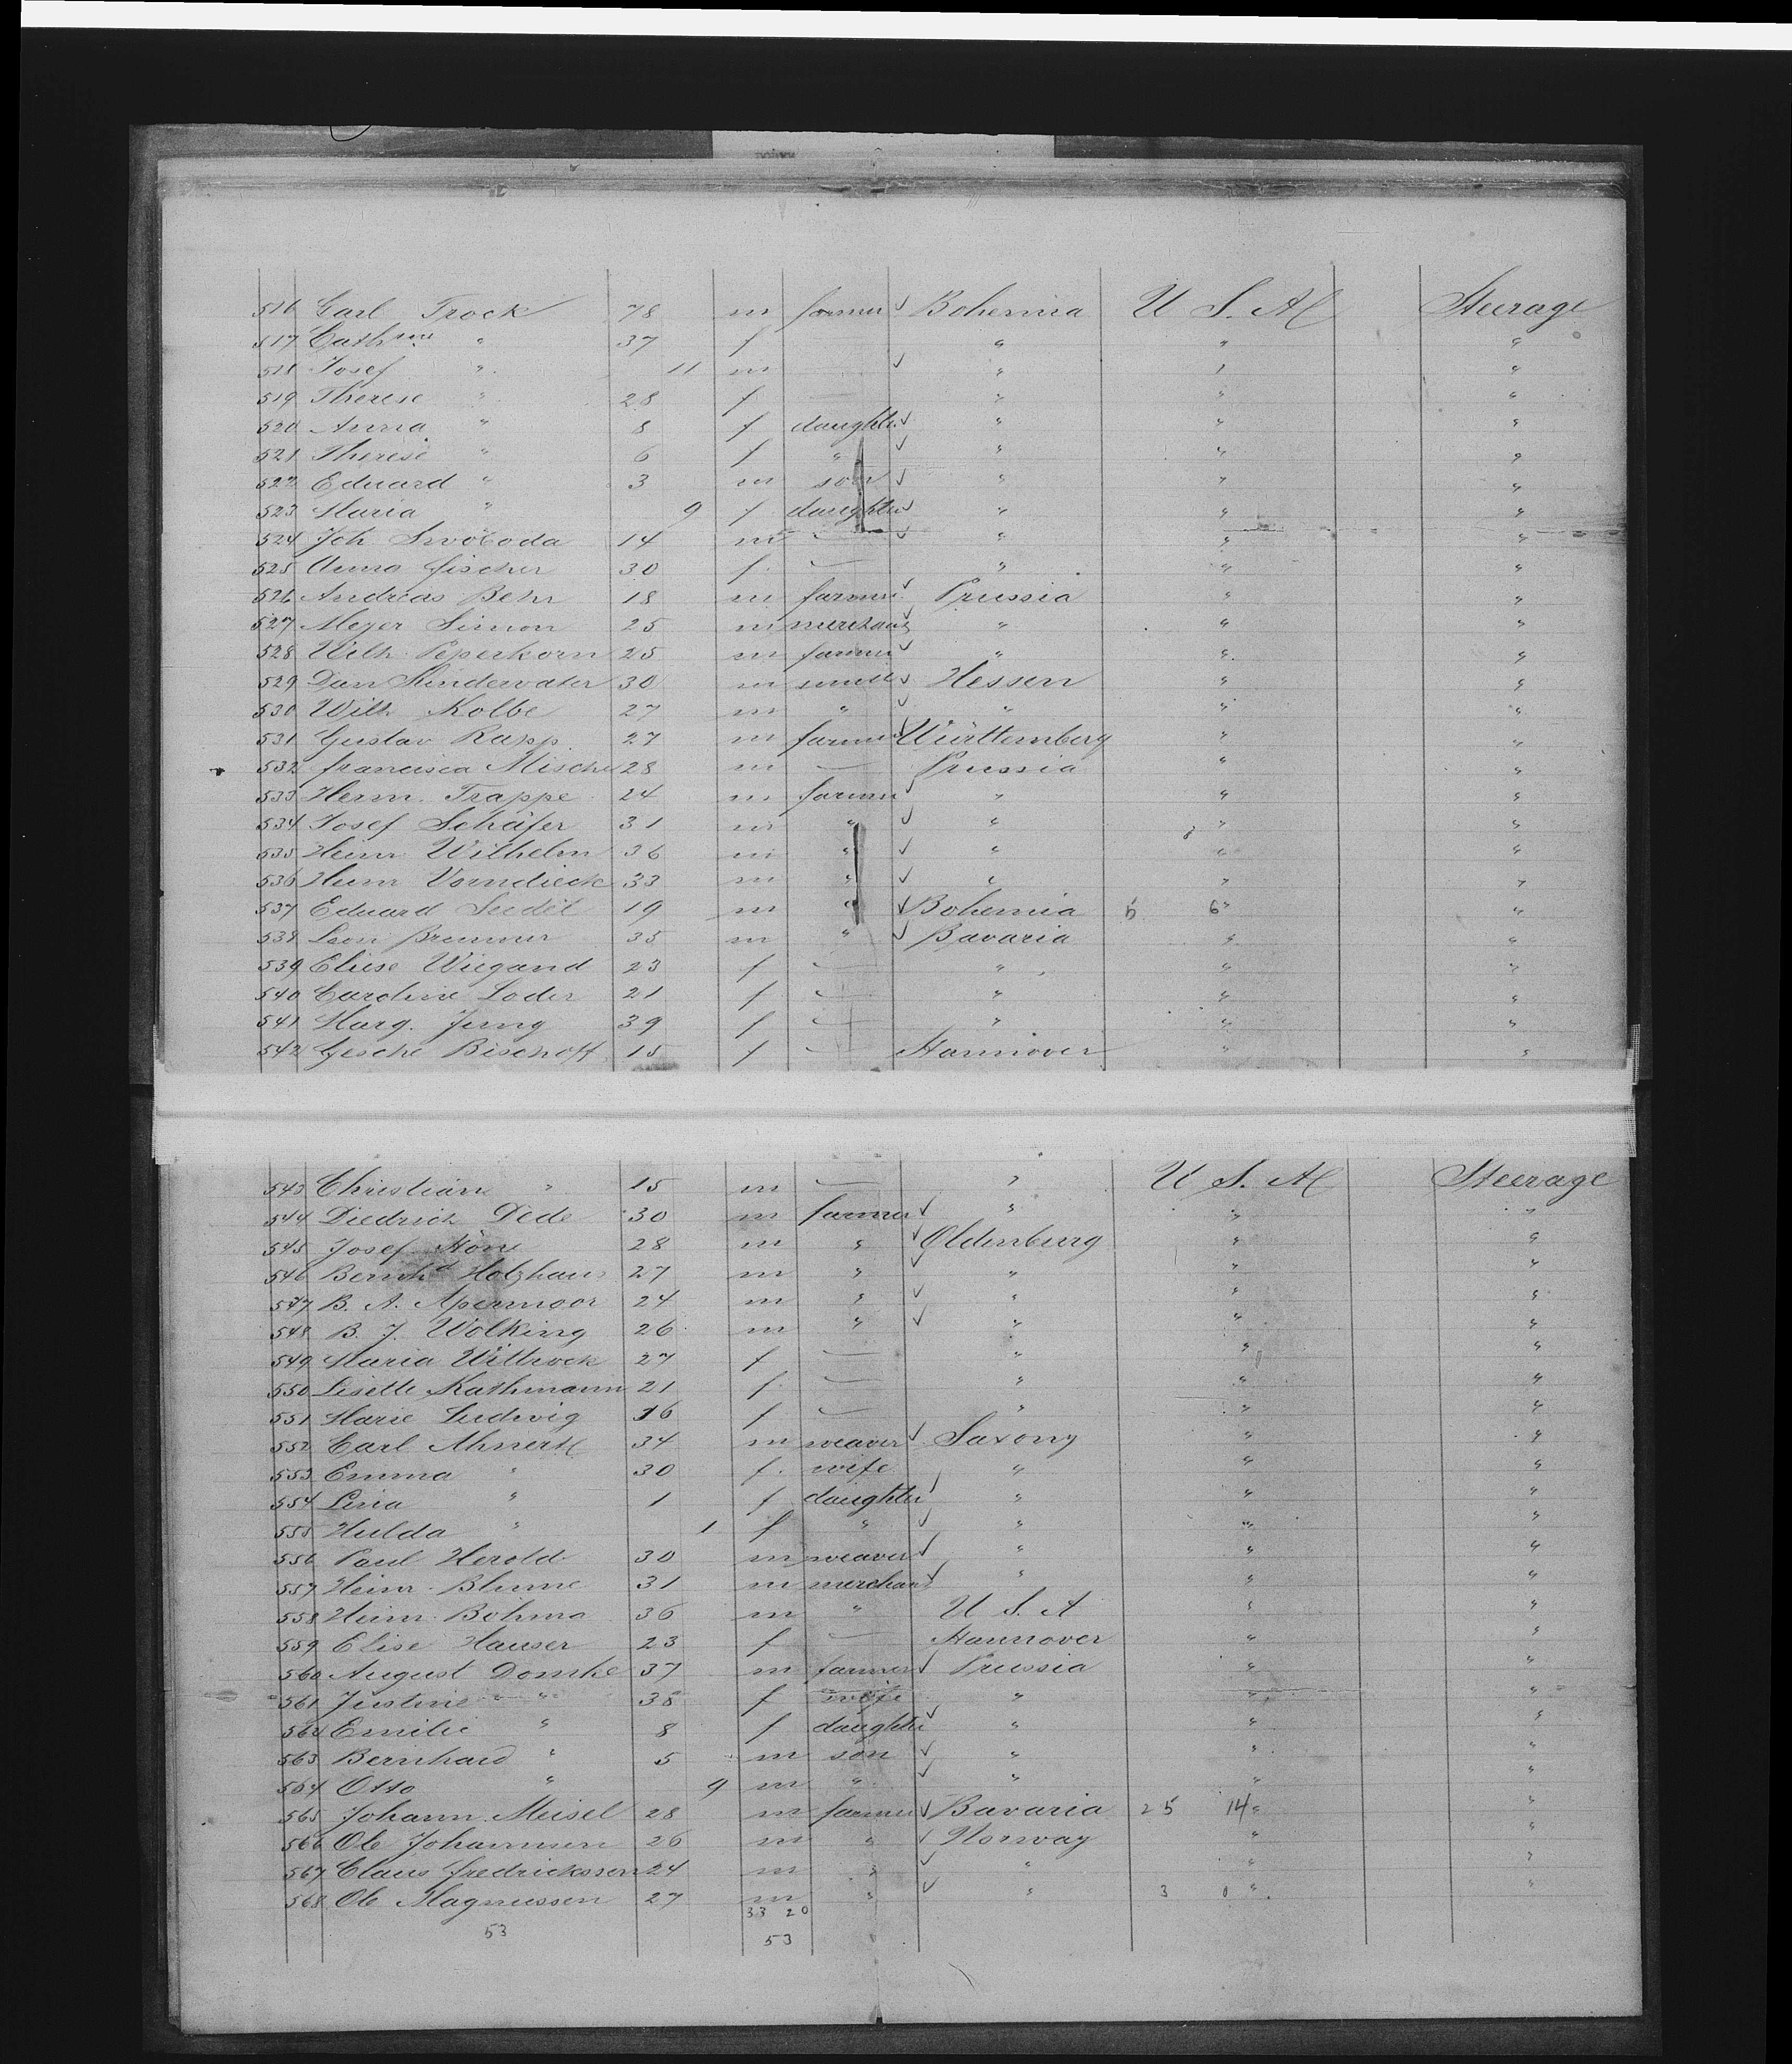 516 Carl Trock 78 m farmer ✓ Bohemia U S. A Steerage
517 Cath " 37 f " " "
518 Josef " 11 m ✓ " " "
519 Therese " 28 f " " "
520 Anna " 8 f daughter ✓ " " "
521 Therese " 6 f " ✓ " " "
522 Eduard " 3 m son ✓ " " "
523 Maria " 9 f daughter ✓ " " "
524 Joh Swoboda 14 m — ✓ " " "
525 Anna Fischer 30 f. — " " "
526 Andreas Behr 18 m farmer ✓ Prussia " "
527 Meyer Simon 25 m merchant ✓ " " "
528 Wilh. Peperkorn 25 m farmer ✓ " " "
529 Dan 30 m ✓ Hessen " "
530 Wilh Kolbe 27 m " ✓ " " "
531 Gustav Rapp 27 m farmer ✓ Württemberg " "
532 Francisca Mische 28 m — Prussia " "
533 Herm. Trappe 24 m farmer ✓ " " "
534 Josef Schäfer 31 m " ✓ " " "
535 Heinr Wilhelm 36 m " ✓ " " "
536 Heinr Vorndieck 33 m " ✓ " " "
537 Eduard Seidel 19 m " ✓ Bohemia 5 6 " "
538 Leon Brunner 35 m " ✓ Bavaria " "
539 Eliese Wiegand 23 f — " " "
540 Caroline Loder 21 f — " " "
541 Marg. Jung 39 f — " " "
542 Gesche Bischoff 15 f — Hannover " "
543 Christian " 15 m — " U S. A Steerage
544 Diedrich Dede 30 m farmer ✓ " " "
545 Josef 28 m " ✓ Oldenburg " "
546 Bernhd Holzhaus 27 m " ✓ " " "
547 B. A. Apermoor 24 m " ✓ " " "
548 B. J. Wolking 26 m " ✓ " " "
549 Maria Wittrock 27 f — " " "
550 Lisette Kathmann 21 f. — " " "
551 Marie Ludwig 16 f — " " "
552 Carl Ahnert 34 m weaver ✓ Saxony " "
553 Emma " 30 f. wife " " "
554 Lina " 1 f daughter ✓ " " "
555 Hulda " 1 f " ✓ " " "
556 Paul Herold 30 m weaver ✓ " " "
557 Heinr. Blume 31 m merchant ✓ " " "
558 Heinr. Bohma 36 m " U S. A " "
559 Elise Hauser 23 f — Hannover " "
560 August Domke 37 m farmer ✓ Prussia " "
561 Justine " 38 f wife " " "
562 Emilie " 8 f daughter ✓ " " "
563 Bernhard " 5 m son ✓ " " "
564 Otto " 9 m " ✓ " " "
565 Johann Meisel 28 m farmer ✓ Bavaria 25 14 " "
566 Ole Johannsen 26 m " ✓ Norway " "
567 Claus Fredrickssen 24 m " ✓ " " "
568 Ole Magnussen 27 m " ✓ " 3 " "
33 20
53 53